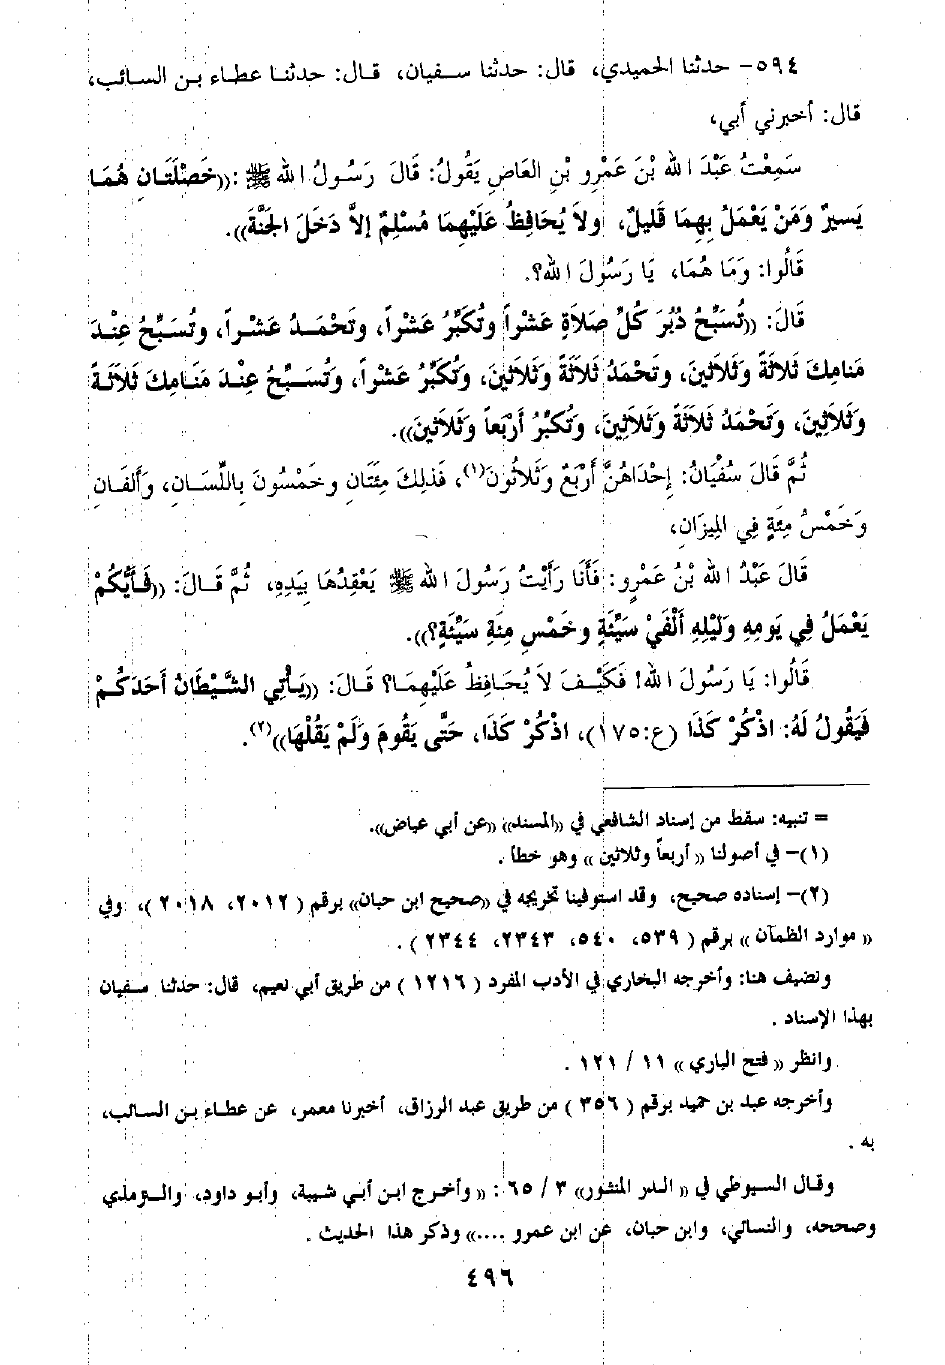 ٥٩٤- حدثنا الحميدي، قال: حدثنا سفيان، قال: حدثنا عطاء بن السائب،
قال: أخبرني أبي،
سَمِعْتُ عَبْدَ الله بْنَ عَمْرِو بْنِ العَاصِ يَقُولُ: قَالَ رَسُولُ الله ﷺ :((خَصْلَتَانِ هُمَا
يَسيرٌ وَمَنْ يَعْمَلُ بِهِمَا قَليلٌ، ولاَ يُحَافِظُ عَلَيْهِمَا مُسْلِمٌ إلاَّ دَخَلَ الجَنَّةَ)).
قَالُوا: وَمَا هُمَا، يَا رَسُولَ الله؟.
قَالَ: ((تُسَبِّحُ دُبُرَ كُلِّ صَلاَةٍ عَشْراً وتُكَبِّرُ عَشْراً، وتَحْمَدُ عَشْراً، وتُسَبِّحُ عِنْدَ
مَنامِكَ ثَلاثَةً وَثَلاَثِينَ، وتَحْمَدُ ثَلاَثَةً وَثَلاَثِينَ، وَتُكَبِّرُ عَشْراً، وتُسَبِّحُ عِنْدَ مَنَامِكَ ثَلاَثَةً
وَثَلاَثِينَ، وَتَحْمَدُ ثَلاَثَةً وَثَلاَثِينَ، وَتُكَبِّرُ أَرْبَعاً وَثَلاَثِينَ)).
ثُمَّ قَالَ سُفْيَانُ: إِحْدَاهُنَّ أَرْبَعٌ وَثَلاَثُونَ(١)، فَذلِكَ مِئَتَانِ وخَمْسُونَ بِاللِّسَانِ، وَأَلفَانِ
وَخَمْسُ مِئَةٍ فِي المِيزَانِ،
قَالَ عَبْدُ الله بْنُ عَمْرٍو: فَأَنَا رَأَيْتُ رَسُولَ الله ﷺ يَعْقِدُهَا بِيَدِهِ، ثُمَّ قَالَ: ((فَأَيُّكُمْ
يَعْمَلُ فِي يَومِهِ وَلَيْلِهِ أَلْفَيْ سَيِّئَةٍ وخَمْسِ مِئَةِ سَيِّئَةٍ؟)).
قَالُوا: يَا رَسُولَ الله! فَكَيْفَ لاَ يُحَافِظُ عَلَيْهِمَا؟ قَالَ: ((يَأْتِي الشَّيْطَانُ أَحَدَكُمْ
فَيَقُولُ لَهُ: اذْكُرْ كَذَا (ع:١٧٥)، اذْكُرْ كَذَا، حَتَّى يَقُومَ وَلَمْ يَقُلْهَا))(٢).
= تنبيه: سقط من إسناد الشافعي في ((المسند)) ((عن أبي عياض)).
(١)- في أصولنا (( أربعاً وثلاثين )) وهو خطأ .
(٢)- إسناده صحيح، وقد استوفينا تخريجه في ((صحيح ابن حبان)) برقم ( ٢٠١٢، ٢٠١٨ )، وفي
(( موارد الظمآن )) برقم ( ٥٣٩، ٥٤٠، ٢٣٤٣، ٢٣٤٤ ) .
ونضيف هنا: وأخرجه البخاري في الأدب المفرد ( ١٢١٦ ) من طريق أبي نعيم، قال: حدثنا سفيان
بهذا الإسناد .
وانظر (( فتح الباري )) ١١ / ١٢١ .
وأخرجه عبد بن حميد برقم ( ٣٥٦ ) من طريق عبد الرزاق، أخبرنا معمر، عن عطاء بن السائب،
به .
وقال السيوطي في (( الدر المنثور)) ٣ / ٦٥ : (( وأخرج ابن أبي شيبة، وأبو داود، والترمذي
وصححه، والنسائي، وابن حبان، عن ابن عمرو ....)) وذكر هذا الحديث .
٤٩٦